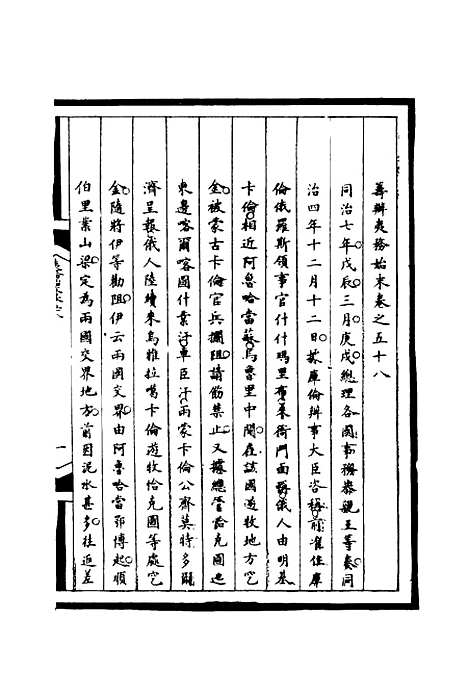 籌辦夷務始末卷之五十八
同治七年戊辰三月庚戌總理各國事務恭親王等奏同
治四年十二月十二日據庫倫辦事大臣咨稱前准住庫
倫俄羅斯領事官什什瑪里布來衙門面稱俄人由明基
卡倫相近阿魯哈當蘇烏魯里中間在該國遊牧地方挖
金被蒙古卡倫官兵攔阻請飭禁止又據總管恰克圖迤
東邊喀爾喀圖什業汗車臣汗兩蒙卡倫公齊莫特多爾
濟呈報俄人陸續來烏雅拉噶卡倫遊牧恰克圖等處挖
金隨將伊等勸阻伊云兩國交界由阿魯哈當鄂博起順
伯里業山梁定為兩國交界地方前因泥水甚多往返差